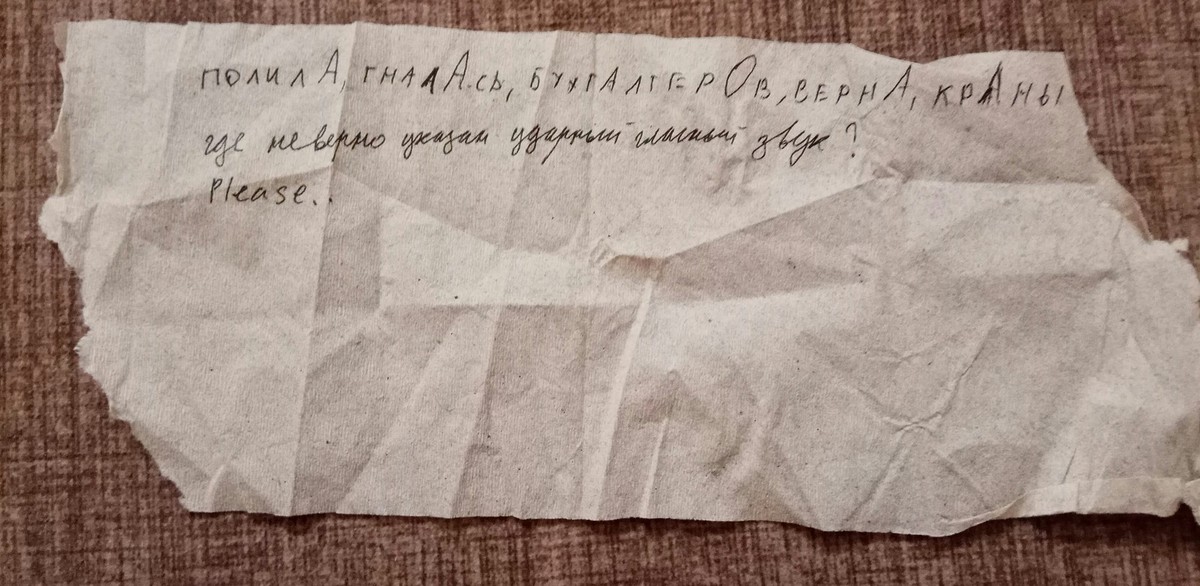 полилА, гналАсь, бухгалтерОв, вернА, крАны
где неверно указан ударный гласный звук?
Please..